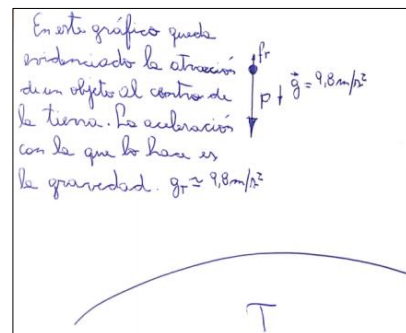 En este gráfico queda
evidenciado la atracción
de un objeto al centro de
la tierra. La aceleración
con la que lo hace es
la gravedad. g_T ≃ 9,8 m/s²
fr
P ↓ g⃗ = 9,8 m/s²
T